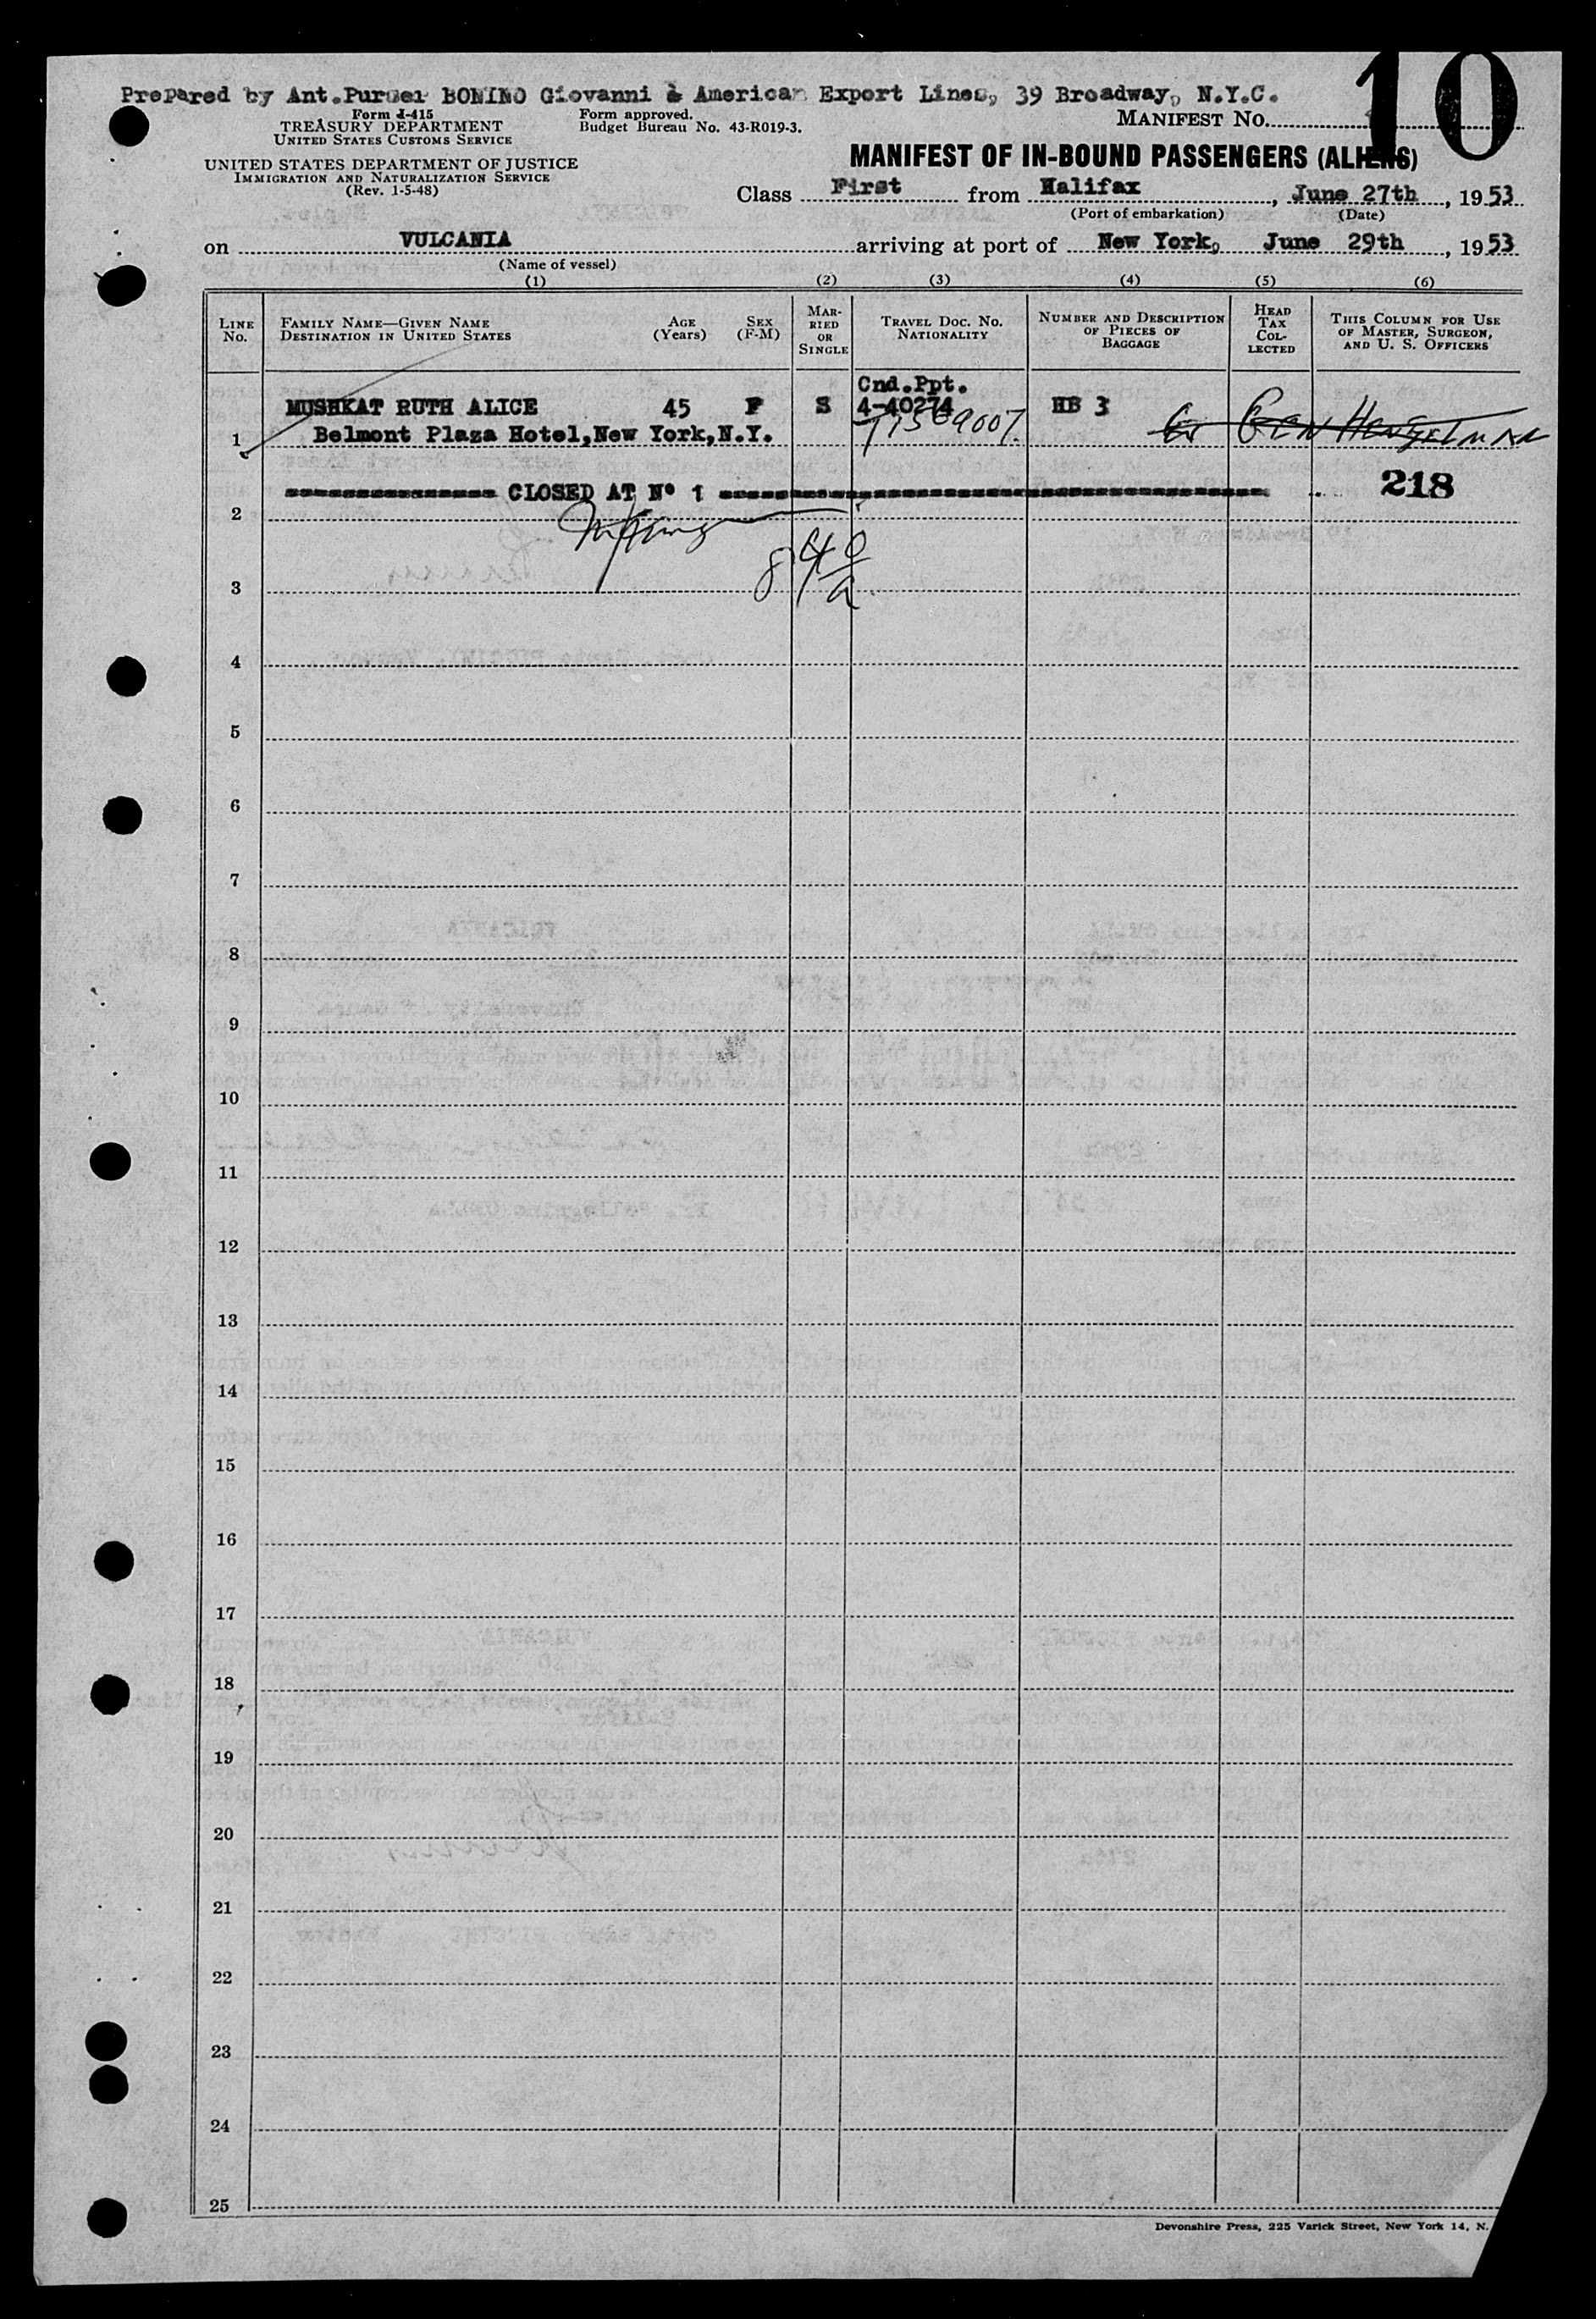 10
Prepared by Ant.Purser BONINO Giovanni & American Export Lines, 39 Broadway, N.Y.C.
Form I-415
TREASURY DEPARTMENT
UNITED STATES CUSTOMS SERVICE
Form approved.
Budget Bureau No. 43-R019-3.
MANIFEST NO.
UNITED STATES DEPARTMENT OF JUSTICE
IMMIGRATION AND NATURALIZATION SERVICE
(Rev. 1-5-48)
MANIFEST OF IN-BOUND PASSENGERS (ALIENS)
Class First from Halifax, June 27th, 1953
(Port of embarkation) (Date)
on VULCANIA arriving at port of New York, June 29th, 1953
(Name of vessel)
(1) (2) (3) (4) (5) (6)
LINE NO.
FAMILY NAME—GIVEN NAME
DESTINATION IN UNITED STATES
AGE (Years)
SEX (F-M)
MARRIED OR SINGLE
TRAVEL DOC. NO. NATIONALITY
NUMBER AND DESCRIPTION OF PIECES OF BAGGAGE
HEAD TAX COLLECTED
THIS COLUMN FOR USE OF MASTER, SURGEON, AND U. S. OFFICERS
Cnd.Ppt.
MUSHKAT RUTH ALICE 45 F S 4-40274 HB 3
1 Belmont Plaza Hotel,New York,N.Y.
CLOSED AT Nº 1 218
2
3
4
5
6
7
8
9
10
11
12
13
14
15
16
17
18
19
20
21
22
23
24
25
Devonshire Press, 225 Varick Street, New York 14, N.